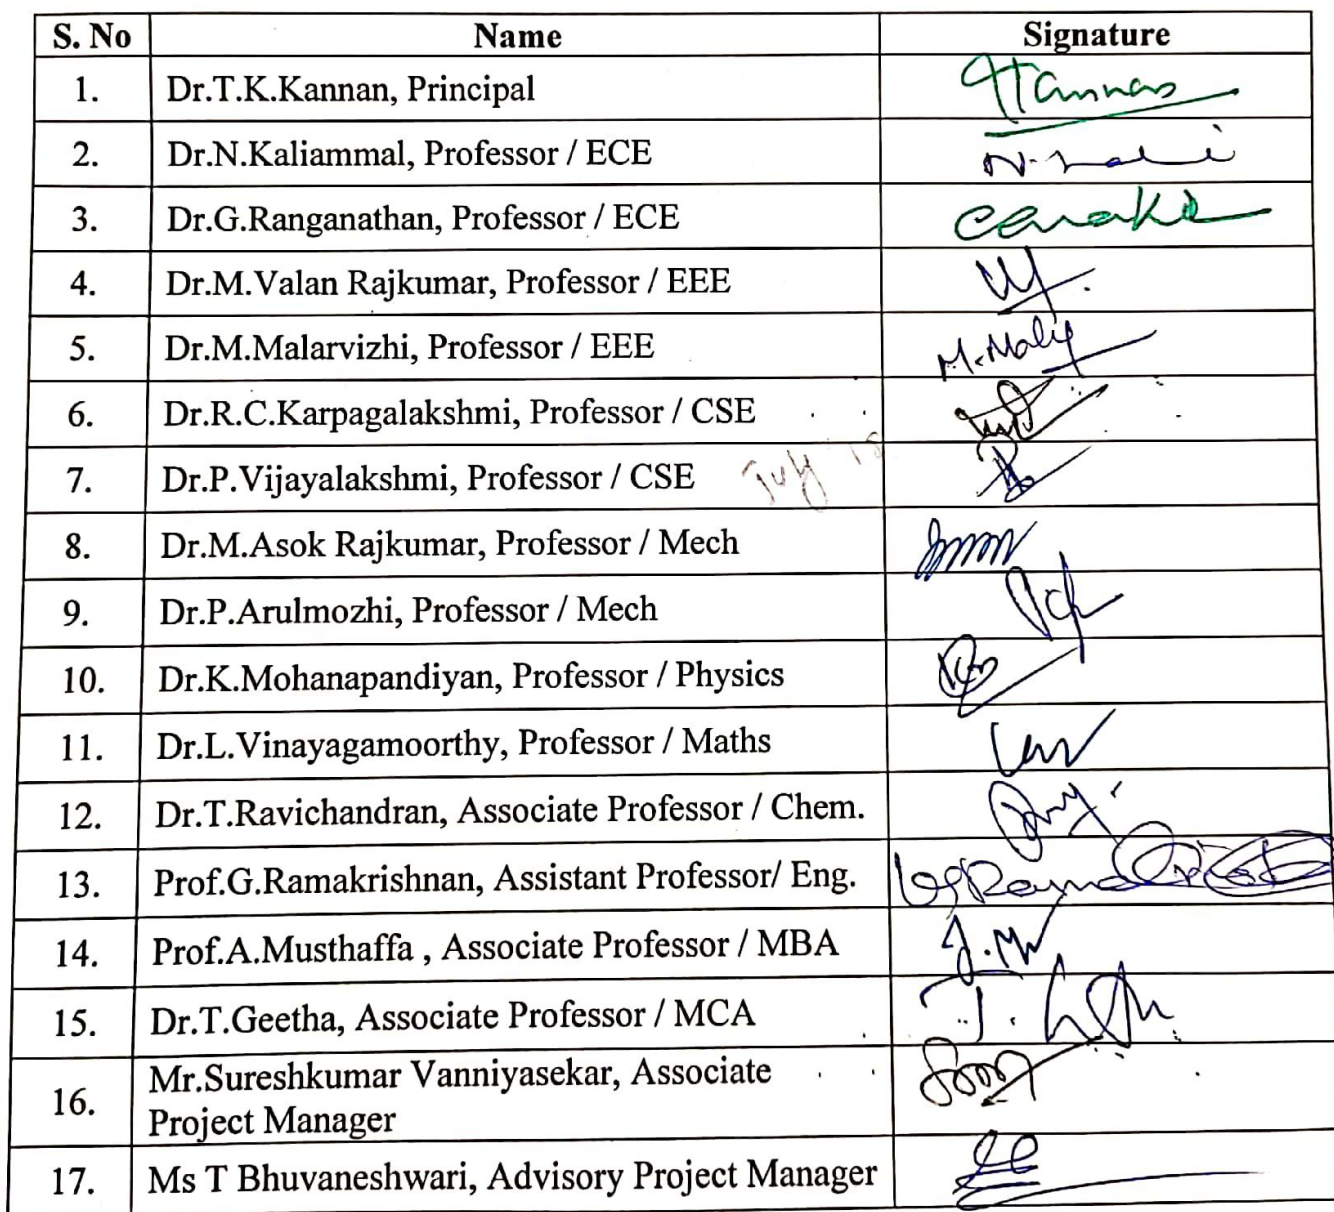 S. No Name Signature
1. Dr.T.K.Kannan, Principal
2. Dr.N.Kaliammal, Professor / ECE
3. Dr.G.Ranganathan, Professor / ECE
4. Dr.M.Valan Rajkumar, Professor / EEE
5. Dr.M.Malarvizhi, Professor / EEE
6. Dr.R.C.Karpagalakshmi, Professor / CSE
7. Dr.P.Vijayalakshmi, Professor / CSE
8. Dr.M.Asok Rajkumar, Professor / Mech
9. Dr.P.Arulmozhi, Professor / Mech
10. Dr.K.Mohanapandiyan, Professor / Physics
11. Dr.L.Vinayagamoorthy, Professor / Maths
12. Dr.T.Ravichandran, Associate Professor / Chem.
13. Prof.G.Ramakrishnan, Assistant Professor/ Eng.
14. Prof.A.Musthaffa , Associate Professor / MBA
15. Dr.T.Geetha, Associate Professor / MCA
16. Mr.Sureshkumar Vanniyasekar, Associate
Project Manager
17. Ms T Bhuvaneshwari, Advisory Project Manager